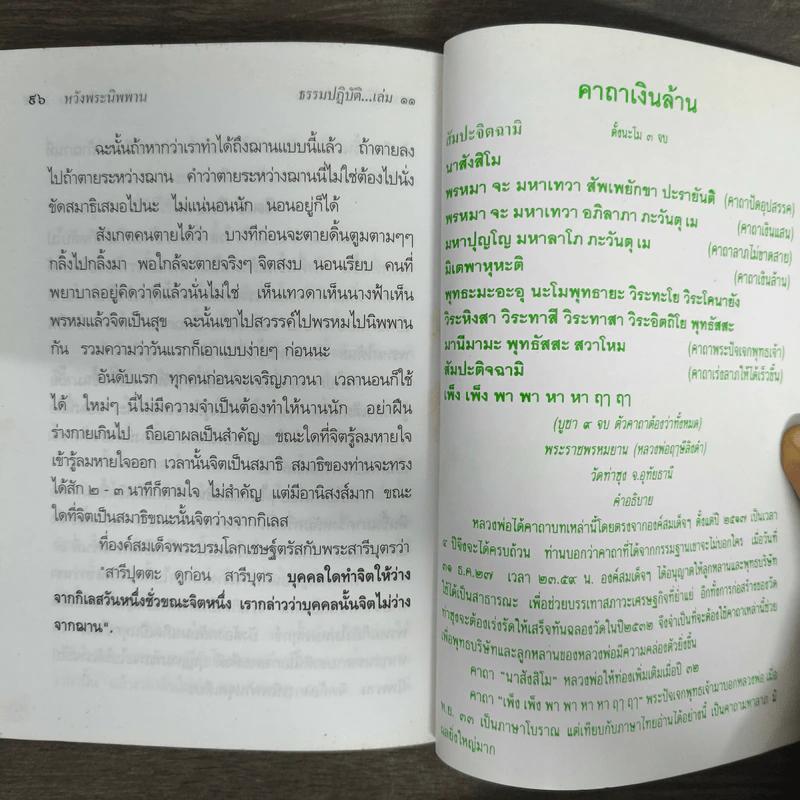 ๕๖ หวังพระนิพพาน ธรรมปฏิบัติ...เล่ม ๑๑
ฉะนั้นถ้าหากว่าเราทำได้ถึงฌานแบบนี้แล้ว ถ้าตายลง
ไปถ้าตายระหว่างฌาน คำว่าตายระหว่างฌานนี่ไม่ใช่ต้องไปนั่ง
ขัดสมาธิเสมอไปนะ ไม่แน่นอนนัก นอนอยู่ก็ได้
สังเกตคนตายได้ว่า บางทีก่อนจะตายดิ้นตูมตามๆๆ
กลิ้งไปกลิ้งมา พอใกล้จะตายจริงๆ จิตสงบ นอนเรียบ คนที่
พยาบาลอยู่คิดว่าดีแล้วนั่นไม่ใช่ เห็นเทวดาเห็นนางฟ้าเห็น
พรหมแล้วจิตเป็นสุข ฉะนั้นเขาไปสวรรค์ไปพรหมไปนิพพาน
กัน รวมความว่าวันแรกก็เอาแบบง่ายๆ ก่อนนะ
อันดับแรก ทุกคนก่อนจะเจริญภาวนา เวลานอนก็ใช้
ได้ ใหม่ๆ นี่ไม่มีความจำเป็นต้องทำให้นานนัก อย่าฝืน
ร่างกายเกินไป ถือเอาผลเป็นสำคัญ ขณะใดที่จิตรู้ลมหายใจ
เข้ารู้ลมหายใจออก เวลานั้นจิตเป็นสมาธิ สมาธิของท่านจะทรง
ได้สัก ๒ - ๓ นาทีก็ตามใจ ไม่สำคัญ แต่มีอานิสงส์มาก ขณะ
ใดที่จิตเป็นสมาธิขณะนั้นจิตว่างจากกิเลส
ที่องค์สมเด็จพระบรมโลกเชษฐ์ตรัสกับพระสารีบุตรว่า
"สารีปุตตะ ดูก่อน สารีบุตร บุคคลใดทำจิตให้ว่าง
จากกิเลสวันหนึ่งชั่วขณะจิตหนึ่ง เรากล่าวว่าบุคคลนั้นจิตไม่ว่าง
จากฌาน".
คาถาเงินล้าน
ตั้งนะโม ๓ จบ
สัมปะจิตฉามิ
นาสังสิโม
พรหมา จะ มหาเทวา สัพเพยักขา ปะรายันติ (คาถาปัดอุปสรรค)
พรหมา จะ มหาเทวา อภิลาภา ภะวันตุ เม (คาถาเงินแสน)
มหาปุญโญ มหาลาโภ ภะวันตุ เม (คาถาลาภไม่ขาดสาย)
มิเตพาหุหะติ (คาถาเงินล้าน)
พุทธะมะอะอุ นะโมพุทธายะ วิระทะโย วิระโคนายัง
วิระหิงสา วิระทาสี วิระทาสา วิระอิตถิโย พุทธัสสะ
มานีมามะ พุทธัสสะ สวาโหม (คาถาพระปัจเจกพุทธเจ้า)
สัมปะติจฉามิ (คาถาเร่งลาภให้ได้เร็วขึ้น)
เพ็ง เพ็ง พา พา หา หา ฤๅ ฤๅ
(บูชา ๙ จบ ตัวคาถาต้องว่าทั้งหมด)
พระราชพรหมยาน (หลวงพ่อฤๅษีลิงดำ)
วัดท่าซุง จ.อุทัยธานี
คำอธิบาย
หลวงพ่อได้คาถาบทเหล่านี้โดยตรงจากองค์สมเด็จฯ ตั้งแต่ปี ๒๕๑๗ เป็นเวลา
๔ ปีจึงจะได้ครบถ้วน ท่านบอกว่าคาถาที่ได้จากกรรมฐานเขาจะไม่บอกใคร เมื่อวันที่
๓๑ ธ.ค.๒๗ เวลา ๒๓.๕๙ น. องค์สมเด็จฯ ได้อนุญาตให้ลูกหลานและพุทธบริษัท
ใช้ได้เป็นสาธารณะ เพื่อช่วยบรรเทาสภาวะเศรษฐกิจที่ย่ำแย่ อีกทั้งการก่อสร้างของวัด
ท่าซุงจะต้องเร่งรัดให้เสร็จทันฉลองวัดในปี๒๕๓๒ จึงจำเป็นที่จะต้องใช้คาถาเหล่านี้ช่วย
เพื่อพุทธบริษัทและลูกหลานของหลวงพ่อมีความคล่องตัวยิ่งขึ้น
คาถา "นาสังสิโม" หลวงพ่อให้ท่องเพิ่มเติมเมื่อปี ๓๒
คาถา "เพ็ง เพ็ง พา พา หา หา ฤๅ ฤๅ" พระปัจเจกพุทธเจ้ามาบอกหลวงพ่อ เมื่อ
พ.ย. ๓๓ เป็นภาษาโบราณ แต่เทียบกับภาษาไทยอ่านได้อย่างนี้ เป็นคาถามหาลาภ มี
ผลยิ่งใหญ่มาก